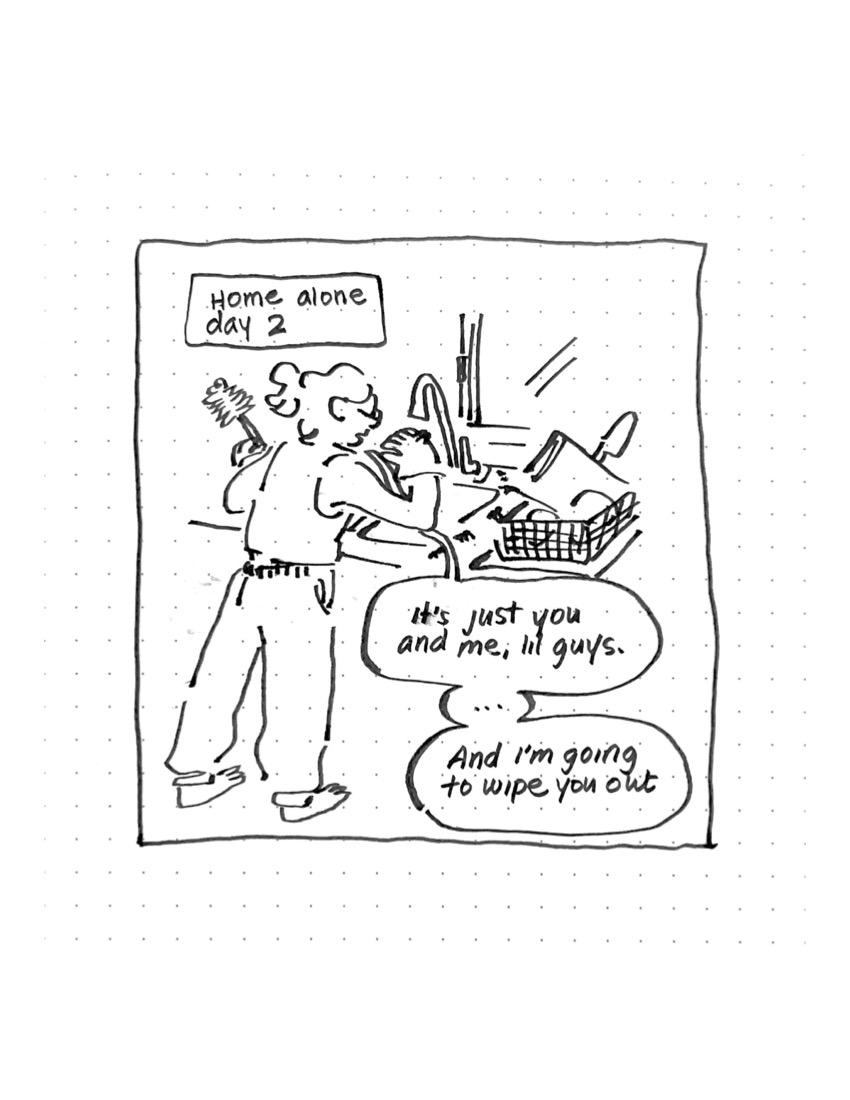 Home alone
day 2
It's just you
and me, lil guys.
...
And I'm going
to wipe you out